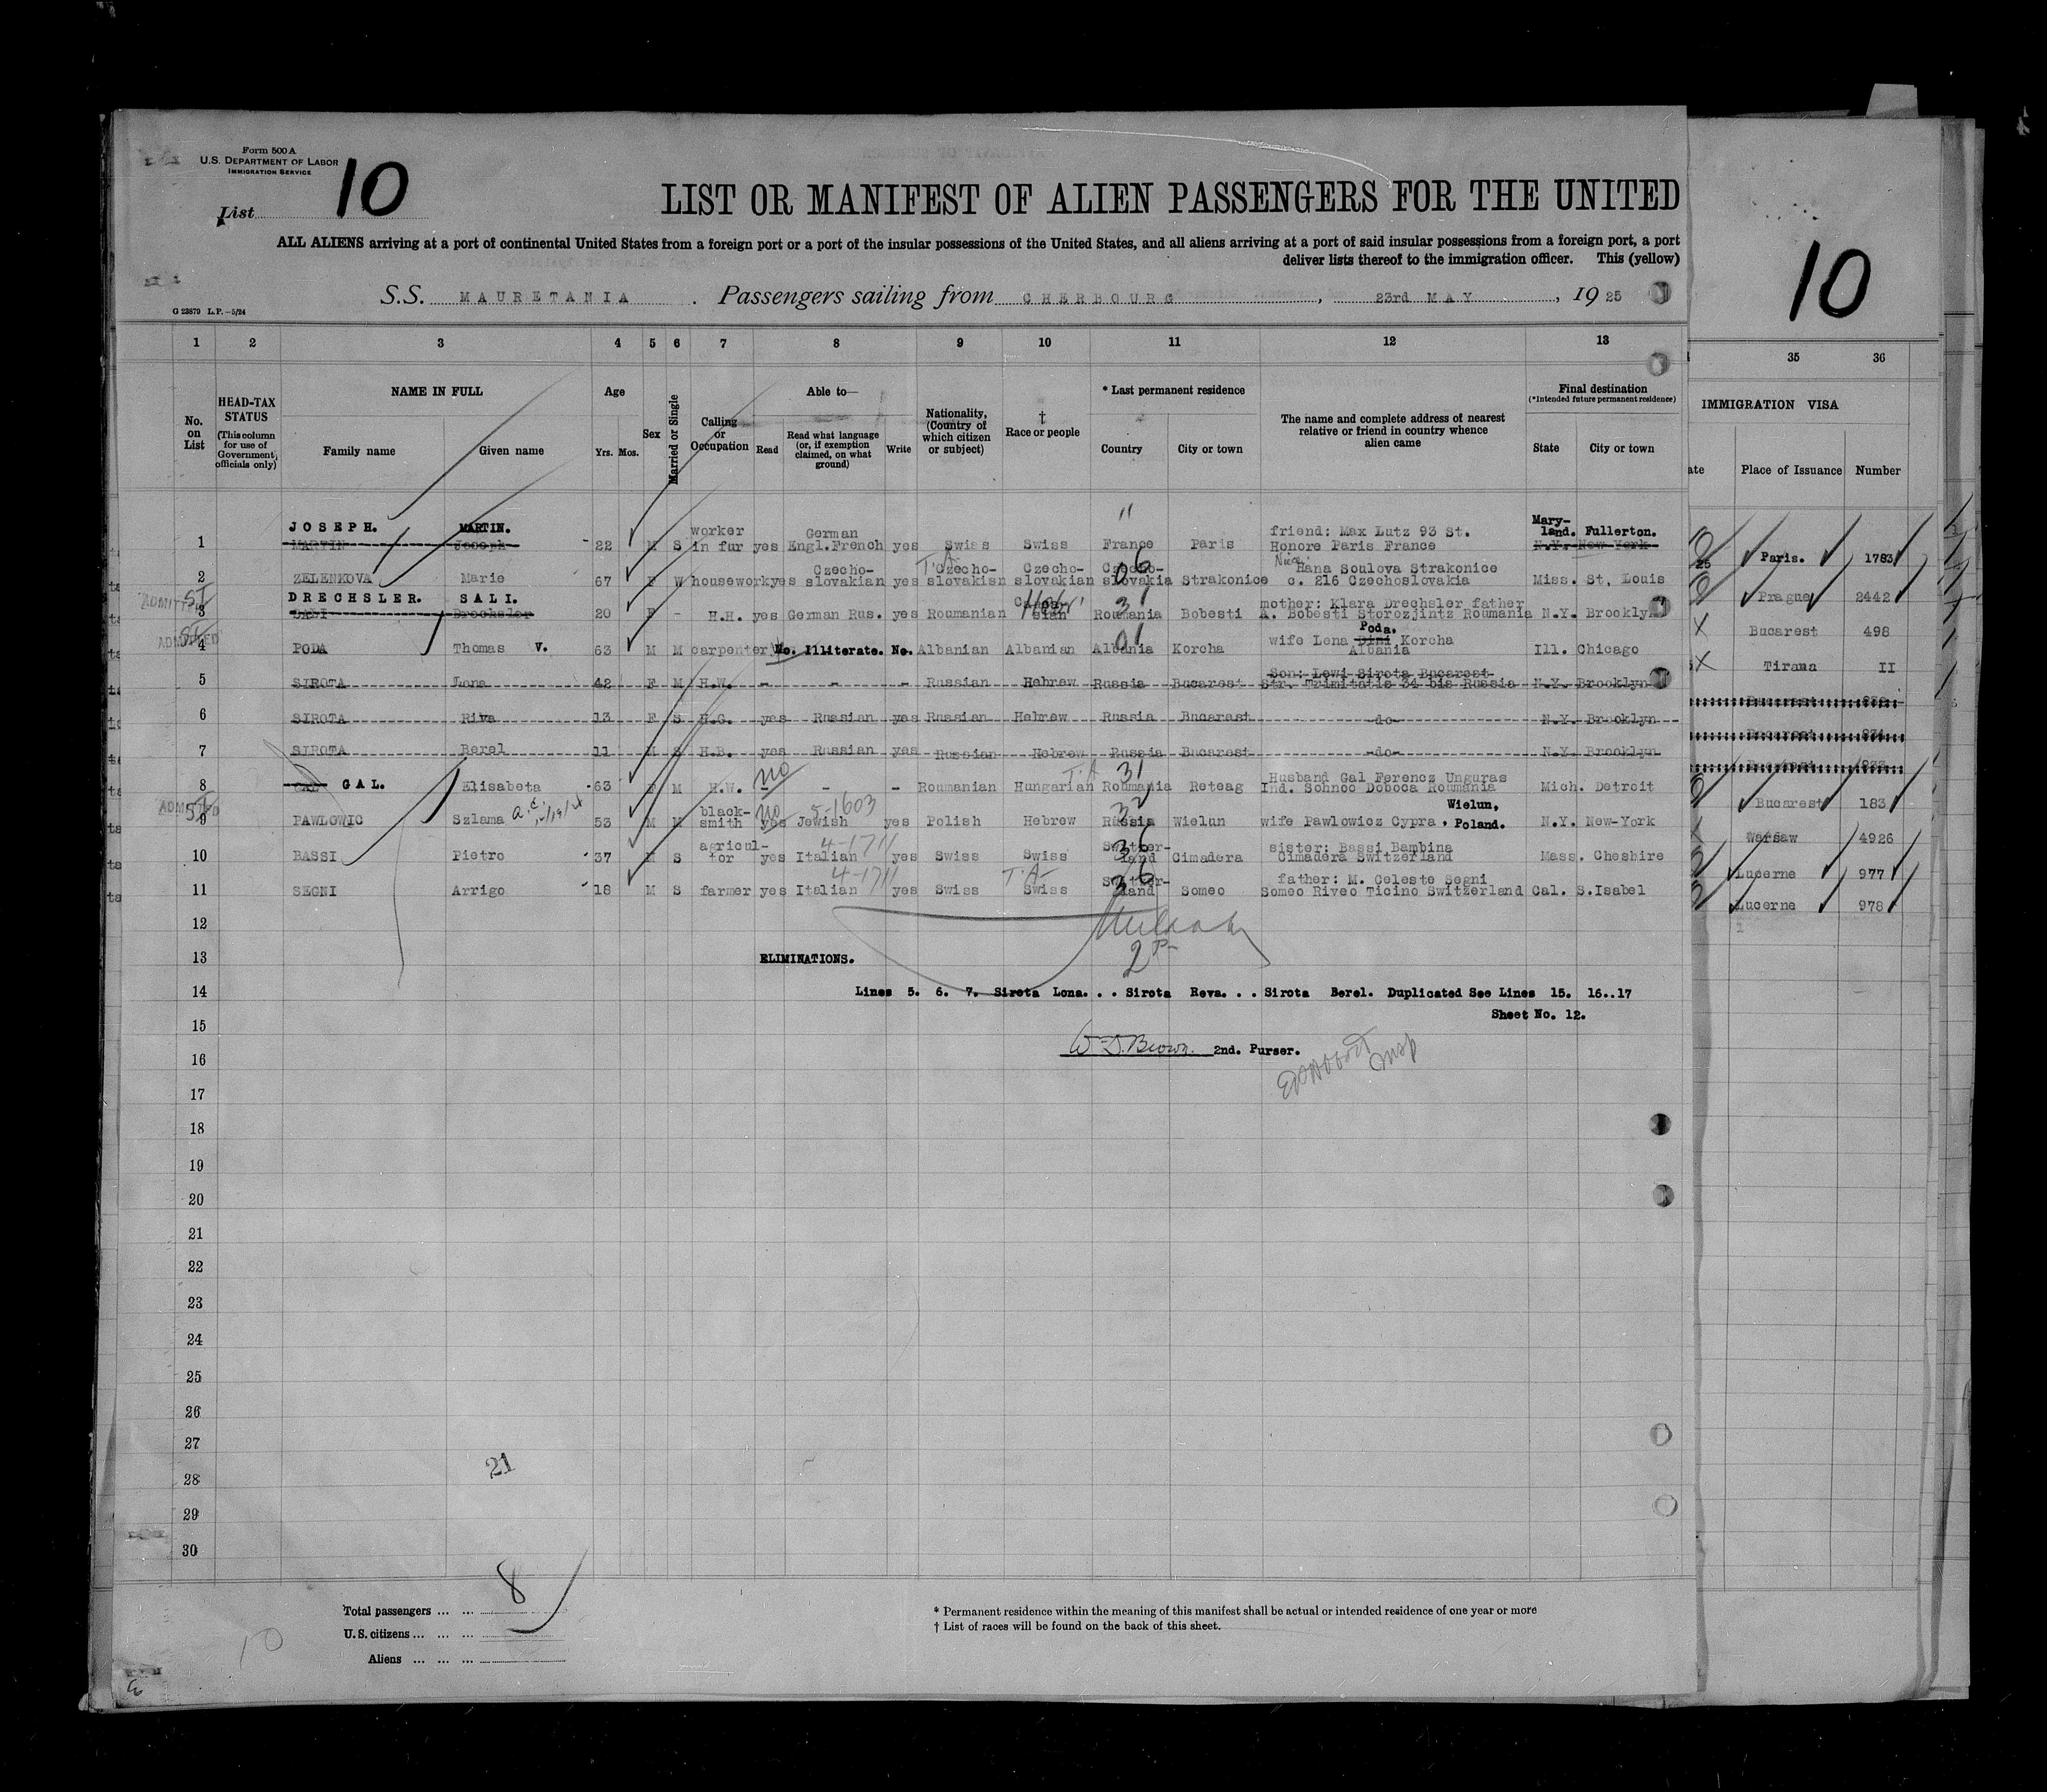 Form 500 A
U.S. DEPARTMENT OF LABOR
IMMIGRATION SERVICE
List 10
LIST OR MANIFEST OF ALIEN PASSENGERS FOR THE UNITED
ALL ALIENS arriving at a port of continental United States from a foreign port or a port of the insular possessions of the United States, and all aliens arriving at a port of said insular possessions from a foreign port, a port
deliver lists thereof to the immigration officer. This (yellow)
S.S. MAURETANIA . Passengers sailing from CHERBOURG , 23rd MAY , 19 25
G 23879 L.P.—5/24
10
1 2 3 4 5 6 7 8 9 10 11 12 13 35 36
No. on List
HEAD-TAX STATUS
(This column for use of Government officials only)
NAME IN FULL
Family name Given name
Age
Yrs. Mos.
Sex
Married or Single
Calling or Occupation
Able to—
Read
Read what language (or, if exemption claimed, on what ground)
Write
Nationality, (Country of which citizen or subject)
† Race or people
* Last permanent residence
Country City or town
The name and complete address of nearest relative or friend in country whence alien came
Final destination
(*Intended future permanent residence)
State City or town
IMMIGRATION VISA
ate Place of Issuance Number
JOSEPH. MARTIN. worker German 11 friend: Max Lutz 93 St. Mary-land. Fullerton.
1 MARTIN Joseph 22 M S in fur yes Engl.French yes Swiss Swiss France Paris Honore Paris France N.Y. New York 25 Paris. 1783
Czecho- Czecho- Czecho- Czecho- Hana Soulova Strakonice
2 ZELENKOVA Marie 67 F W housework yes slovakian yes slovakian slovakian slovakia Strakonice c. 216 Czechoslovakia Miss. St. Louis Prague 2442
DRECHSLER. SALI. mother: Klara Drechsler father
ADMITTED SI 3 SALI Drechsler 20 F - H.H. yes German Rus. yes Roumanian sian Roumania Bobesti A. Bobesti Storozjintz Roumania N.Y. Brooklyn Bucarest 498
Poda.
ADMITTED SI 4 PODA Thomas V. 63 M M carpenter No. Illiterate. No. Albanian Albanian Albania Korcha wife Lena Dini Korcha Albania Ill. Chicago Tirana II
Son: Lewi Sirota Bucarest
5 SIROTA Lona 42 F M H.W. - - - Russian Hebrew Russia Bucarest Str. Trimitatis 34 bis Russia N.Y. Brooklyn Bucarest
6 SIROTA Riva 13 F S H.G. yes Russian yes Russian Hebrew Russia Bucarest -do- N.Y. Brooklyn Bucarest
7 SIROTA Berel 11 M S H.B. yes Russian yes Russian Hebrew Russia Bucarest -do- N.Y. Brooklyn Bucarest
no T.A 31 Husband Gal Ferencz Unguras
8 GAL GAL. Elisabeta 63 F M H.W. - - - Roumanian Hungarian Roumania Reteag Ind. Sohnoc Doboca Roumania Mich. Detroit Bucarest 183
black- no 5-1603 Wielun,
ADMITTED SI 9 PAWLOWIC Szlama 53 M M smith yes Jewish yes Polish Hebrew Russia Wielun wife Pawlowicz Cypra, Poland. N.Y. New-York Warsaw 4926
agricul- 4-1711 Switzer- sister: Bassi Bambina
10 BASSI Pietro 37 M S tor yes Italian yes Swiss Swiss land Cimadera Cimadera Switzerland Mass. Cheshire Lucerne 977
4-1711 T.A Switzer- father: M. Celeste Segni
11 SEGNI Arrigo 18 M S farmer yes Italian yes Swiss Swiss land Someo Someo Riveo Ticino Switzerland Cal. S.Isabel Lucerne 978
12
13 ELIMINATIONS.
14 Lines 5. 6. 7. Sirota Lona. . . Sirota Reva. . . Sirota Berel. Duplicated See Lines 15. 16..17
Sheet No. 12.
15
W D. Brown. 2nd. Purser.
16
17
18
19
20
21
22
23
24
25
26
27
21
28
29
30
Total passengers ... ... 8
U.S. citizens ... ... ...
Aliens ... ... ...
10
* Permanent residence within the meaning of this manifest shall be actual or intended residence of one year or more
† List of races will be found on the back of this sheet.